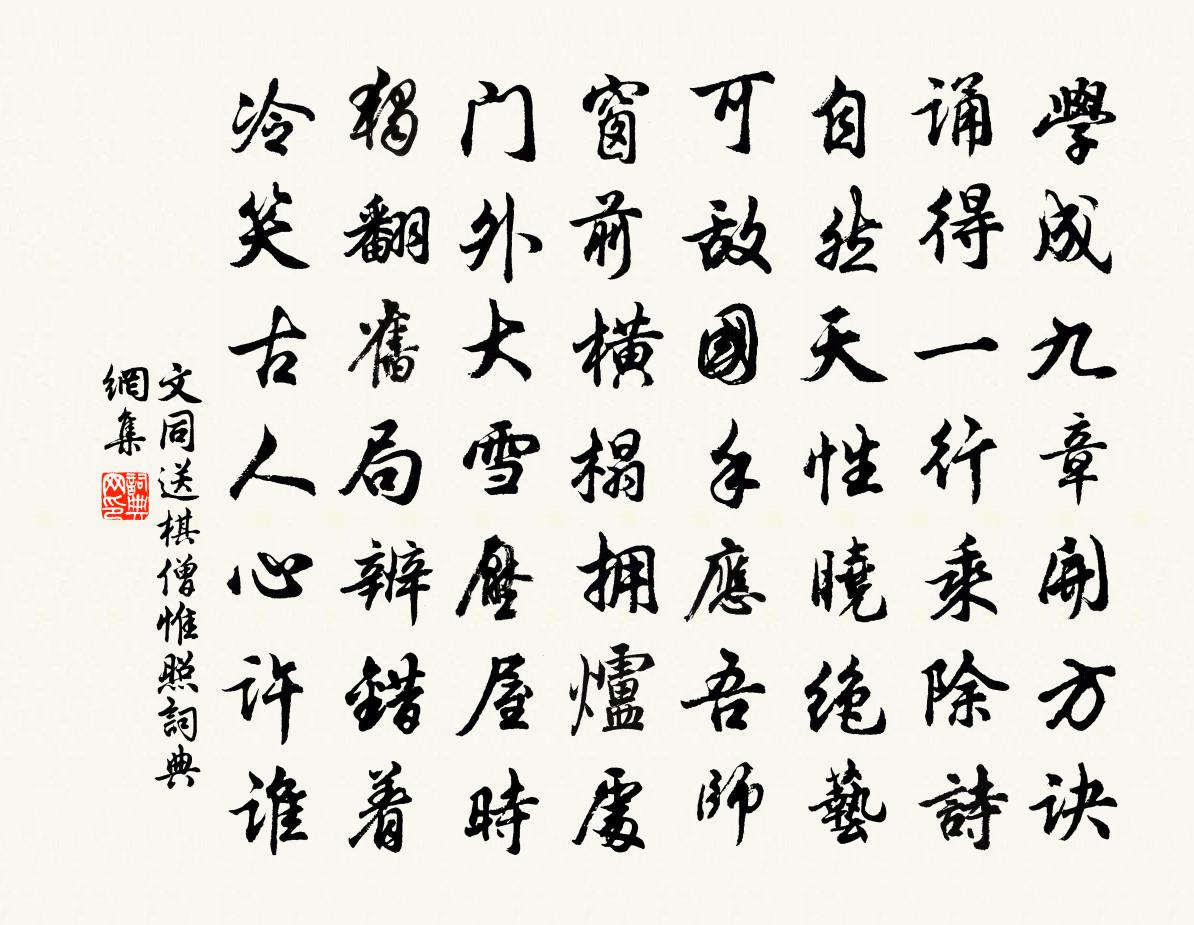 學成九章開方诀
诵得一行乘除詩
自然天性曉绝藝
可敌國手應吾師
窗前横榻拥爐處
门外大雪壓屋時
獨翻舊局辨錯着
冷笑古人心许谁
文同送棋僧惟照詞典
網集
詞典网印